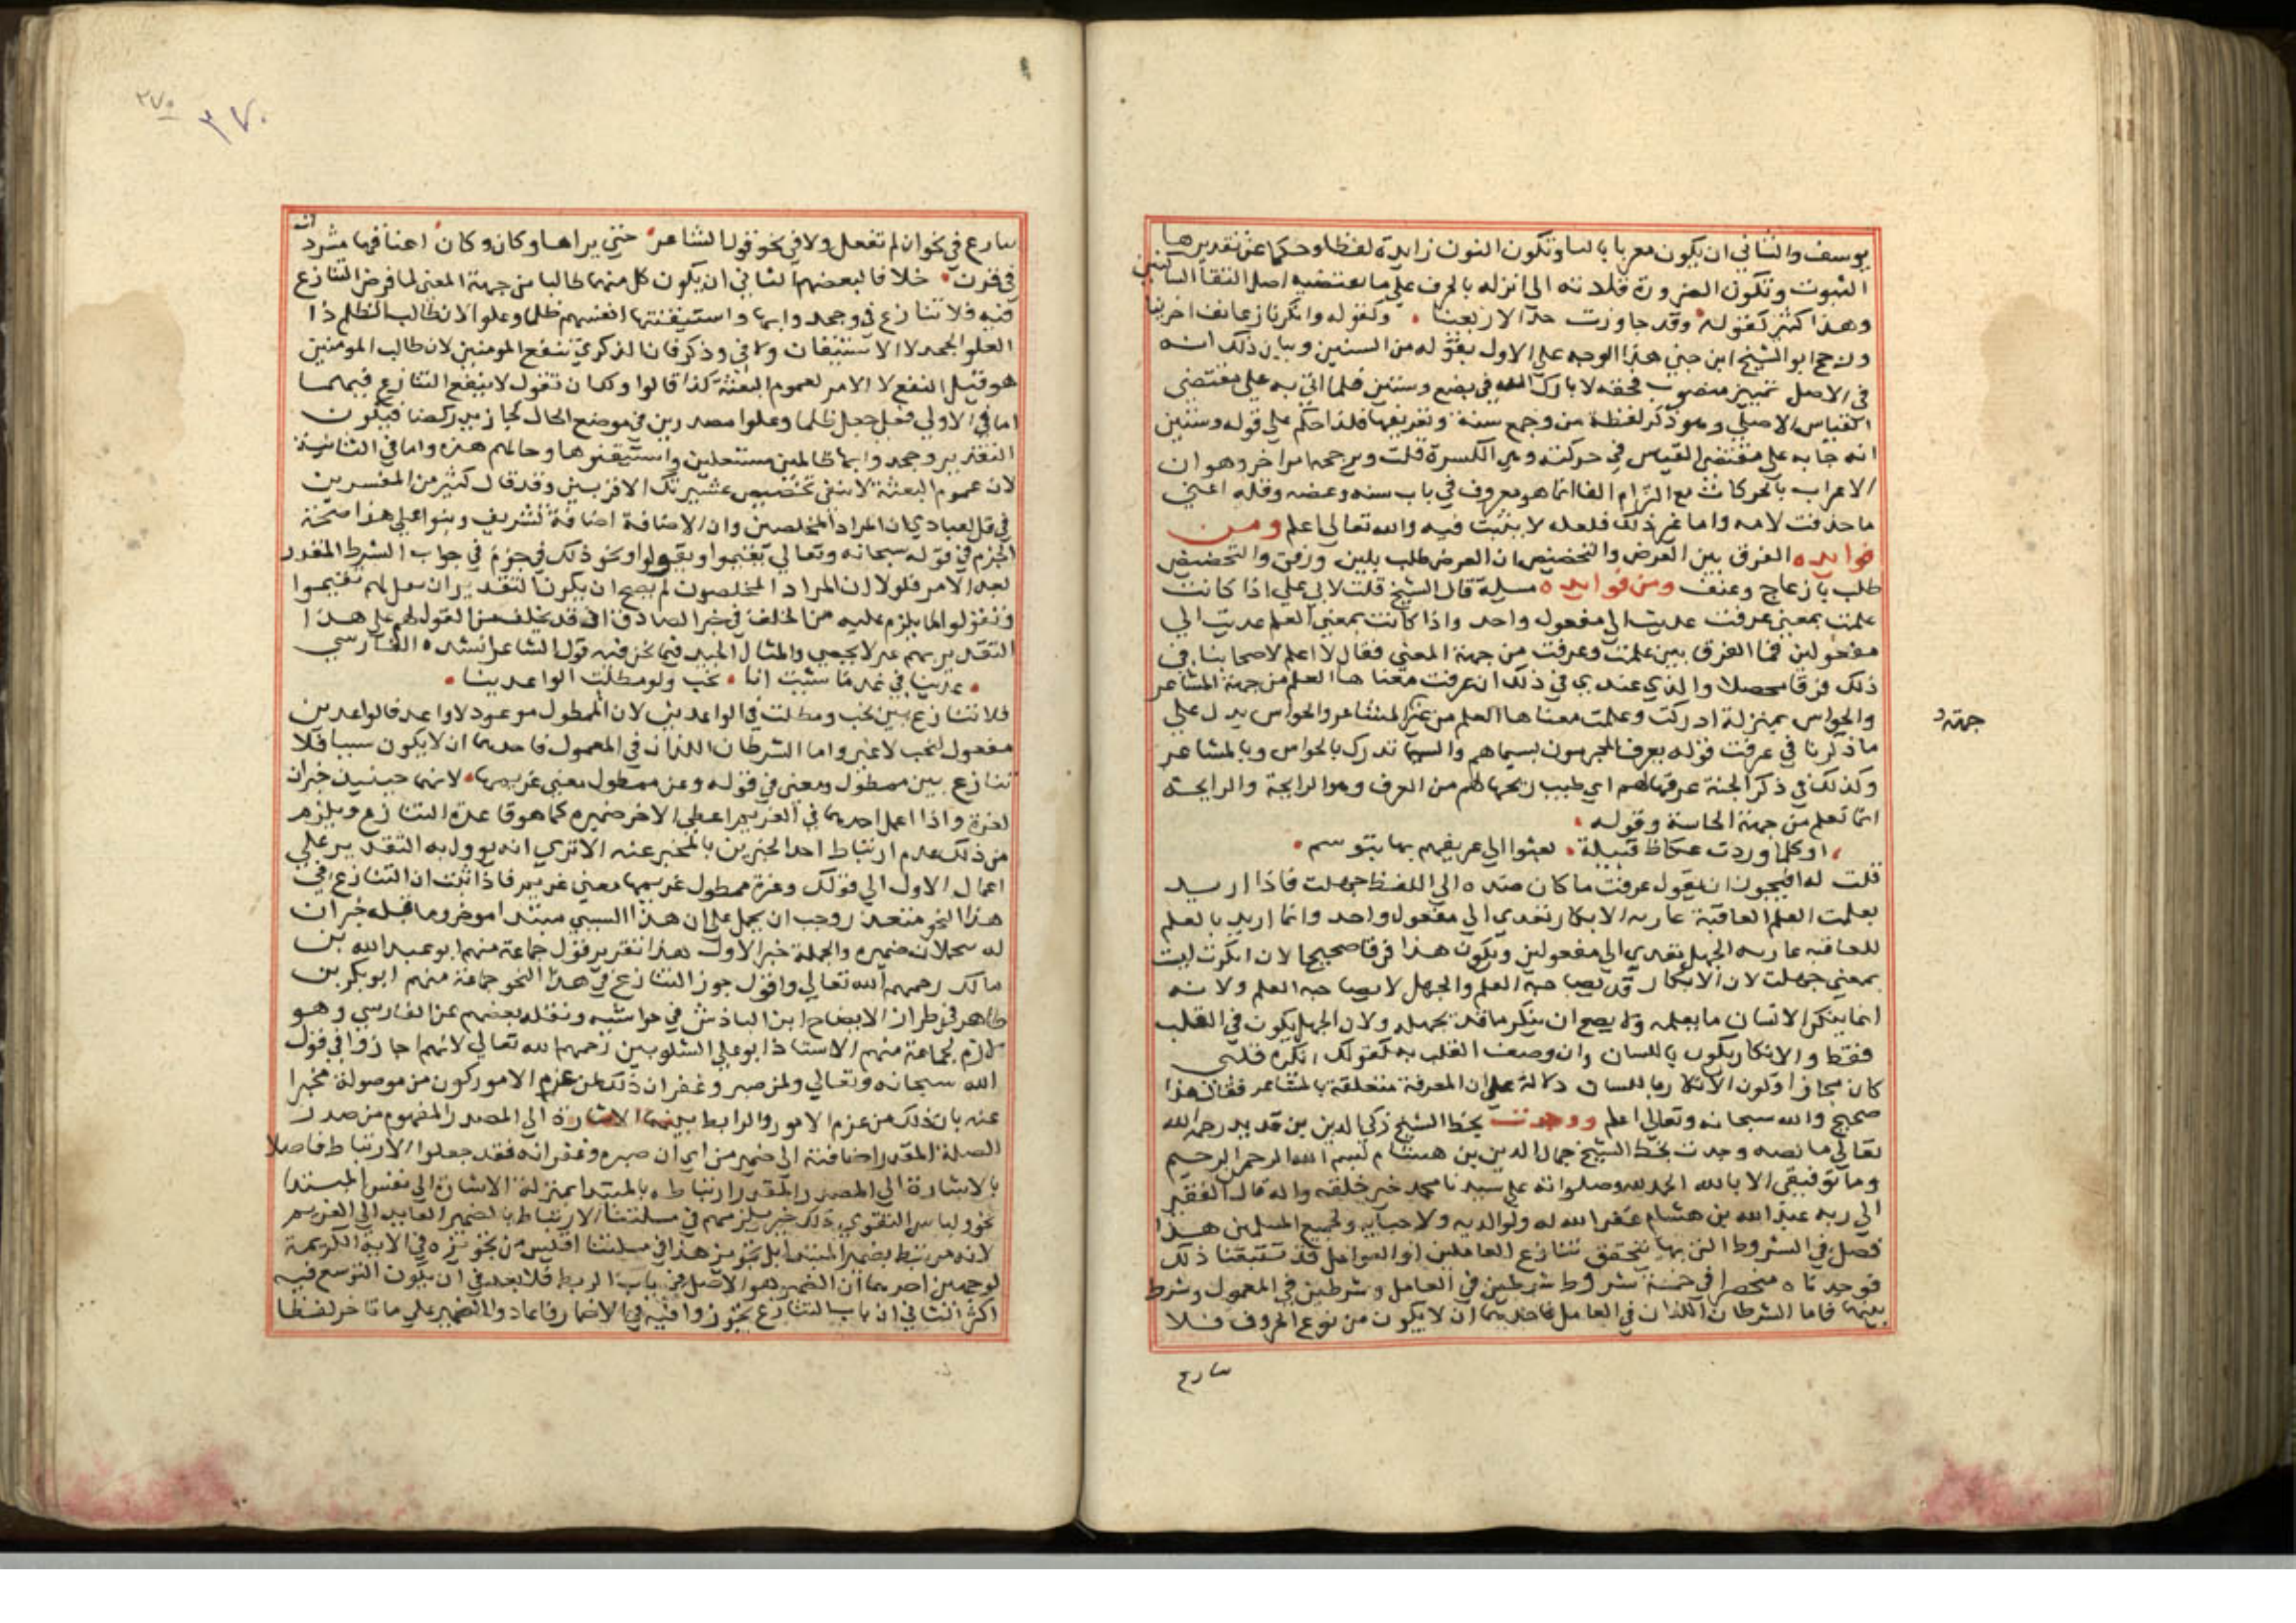 يوسف والثاني ان يكون معربا باليا وتكون النون زايدة لفظا وحكما عن تقديرها
الثبوت وتكون الضرورة قلادته الى انزله بالحرف على ما يقتضيه اصل التقا الساكنين
وهذا كثير كقوله وقد جاوزت حد الاربعينا وكقوله وانكرنا زعانف اخرينا
ورجح ابو الشيخ ابن جني هذا الوجه على الاول بقوله من السنين وبيان ذلك انه
في الاصل تمييز منصوب فحقه لا بارك الله في بضع وسنين فلما اتى به على مقتضى
القياس الاصلي وهو ذكر لفظة من وجمع سنة وتعريفها فلذا حكم على قوله وسنين
انه جا به على مقتضى القياس في حركته وهي الكسرة قلت ويرجحه امر اخر وهو ان
الاعراب بالحركات مع التزام اليا انما هو معروف في باب سنه وعضه وقله اعني
ما حذفت لامه واما غير ذلك فلعله لا يثبت فيه والله تعالى اعلم ومن
فوايده الفرق بين العرض والتحضيض ان العرض طلب بلين ورفق والتحضيض
طلب بازعاج وعنف ومن فوايده مسيلة قال الشيخ قلت لابي علي اذا كانت
علمت بمعنى عرفت عديت الى مفعول واحد واذا كانت بمعنى العلم عديت الى
مفعولين فما الفرق بين علمت وعرفت من جهة المعنى فقال لا اعلم لاصحابنا في
ذلك فرقا محصلا والذي عندي في ذلك ان عرفت معناها العلم من جهة المشاعر
والحواس بمنزلة ادركت وعلمت معناها العلم من غير المشاعر والحواس يدل على
جهة
ما ذكرنا في عرفت قوله يعرف المجرمون بسيماهم والسيما تدرك بالحواس وبالمشاعر
وكذلك في ذكر الجنة عرفها لهم اي طيب ريحها لهم من العرف وهو الرايحة والرايحة
انما تعلم من جهة الحاسة وقوله
او كلما وردت عكاظ قبيلة بعثوا الي عريفهم بها يتوسم
قلت له افيجوز ان يقول عرفت ما كان ضده الى اللفظ جهلت فاذا اريد
بعلمت العلم العاقبة عاربه الانكار تعدى الى مفعول واحد وانما اريد بالعلم
للعاقبه عاربه الجهل تعدى الى مفعولين ويكون هذا فرقا صحيحا لان انكرت ليست
بمعنى جهلت لان الانكار قد يصاحبه العلم والجهل لا يصاحبه العلم ولانه
انما ينكر الانسان ما يعلمه ولا يصح ان ينكر ما قد يجهله ولان الجهل يكون في القلب
فقط والانكار يكون باللسان وان وصف القلب به كقولك انكره قلبي
كان مجازا وكون الانكار باللسان دلالة على ان المعرفة متعلقة بالمشاعر فقال هذا
صحيح والله سبحانه وتعالى اعلم ووجدت بخط الشيخ زكي الدين بن قديد رحمه الله
تعالى ما نصه وجدت بخط الشيخ جمال الدين بن هشام بسم الله الرحمن الرحيم
وما توفيقي الا بالله الحمد لله وصلواته على سيدنا محمد خير خلقه واله قال الفقير
الى ربه عبد الله بن هشام غفر الله له ولوالديه ولاحبابه ولجميع المسلمين هذا
فصل في الشروط التي بها يتحقق تنازع العاملين او العوامل قد تتبعنا ذلك
فوجدناه منحصرا في خمسة شروط شرطين في العامل وشرطين في المعمول وشرط
بينهما فاما الشرطان اللذان في العامل فاحدهما ان لا يكون من نوع الحروف فلا
سارع
٢٧٥
٢٧٠
سارع في نحو ان لم تفعل ولا في نحو قول الشاعر حتى يراها وكان وكان اعناقها مشردات
في قرن خلافا لبعضهم الثاني ان يكون كل منهما طالبا من جهة المعنى لما فرض التنازع
فيه فلا تنازع في وجحدوا بها واستيقنتها انفسهم ظلما وعلوا لان طالب الظلم ذا
العلو الجحد لا الاستيقان ولا في وذكر فان الذكرى تنفع المومنين لان طالب المومنين
هو قبيل النفع لا الامر لعموم البعثة كذا قالوا وكما ان تقول لا يمنع التنازع فيهما
اما في الاولى فعلى جعل ظلما وعلوا مصدرين في موضع الحال كجا زيد ركضا فيكون
التقدير وجحدوا بها ظالمين مستعلين واستيقنوها وحالهم هذه واما في الثانية
لان عموم البعثة لا ينفي تخصيص عشيرتك الاقربين وقد قال كثير من المفسرين
في قل لعبادي ان المراد المخلصين وان الاضافة اضافة تشريف وبنوا على هذا صحة
الجزم في قوله سبحانه وتعالى يقيموا ويقولوا ونحو ذلك في جزم في جواب الشرط المقدر
بعد الامر فلولا ان المراد المخلصون لم يصح ان يكون التقدير ان تقل لهم يقيموا
ويقولوا لما يلزم عليه من الخلف في خبر الصادق اذ قد يخلف من القول لهم على هذا
التقدير بهم غير لا يجيبي والمثال الجيد فيما نحن فيه قول الشاعر انشده الفارسي
عدينا في غد ما شيت انا نحب ولو مطلت الواعدينا
فلا تنازع بين نحب ومطلت في الواعدين لان الممطول موعود لا واعد فالواعدين
مفعول لنحب لا غير واما الشرطان اللذان في المعمول فاحدهما ان لا يكون سببيا فلا
تنازع بين ممطول ومعنى في قوله وعز ممطول معنى غريمها لانهما حينيذ خبران
لعزة واذا اعمل احدهما في الغريم اعطى الاخر ضميره كما هو قاعدة التنازع ويلزم
من ذلك عدم ارتباط احد الخبرين بالمخبر عنه الا ترى انه يوول به التقدير على
اعمال الاول الى قولك وعزة ممطول غريمها معنى غريم فاذا ثبت ان التنازع في
هذا النحو متعذر وجب ان يحمل على ان هذا السببي مبتدا موخر وما قبله خبران
له متحملان ضميره والجملة خبر الاول هذا تقرير قول جماعة منهم ابو عبد الله بن
مالك رحمهم الله تعالى واقول جوز التنازع في هذا النحو جماعة منهم ابو بكر بن
طاهر في طرر الايضاح وابن الباذش في حواشيه ونقله بعضهم عن الفارسي وهو
لازم لجماعة منهم الاستاذ ابو علي الشلوبين رحمهم الله تعالى لانهم اجازوا في قول
الله سبحانه وتعالى ولمن صبر وغفر ان ذلك لمن عزم الامور كون من موصولة مخبرا
عنه بان ذلك من عزم الامور والرابط بينهما الاشارة الى المصدر المفهوم من صدر
الصلة المقدر اضافته الى ضمير من اي ان صبره وغفرانه فقد جعلوا الارتباط فاصلا
بالاشارة الى المصدر المقدر ارتباطه بالمبتدا بمنزلة الاشارة الى نفس المبتدا
نحو ولباس التقوى ذلك خير يلزمهم في مسلتنا الارتباط بالضمير العايد الى الغريم
لانه مرتبط بضمير المبتدا بل نحويز هذا في مسلتنا اقيس من نحويزه في الاية الكريمة
لوجهين احدهما ان الضمير هو الاصل في باب الربط فلا يبعد في ان يكون التوسع فيه
اكثر الثاني ان باب التنازع يجوزوا فيه في الاضمار فاعادوا الضمير على ما تاخر لفظا